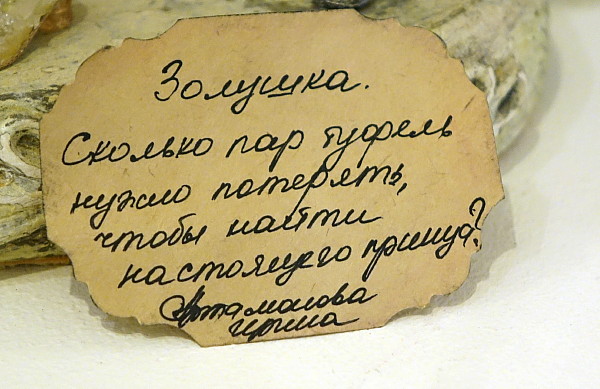 Золушка.
Сколько пар туфель
нужно потерять,
чтобы найти
настоящего принца?
Артамонова
Ирина